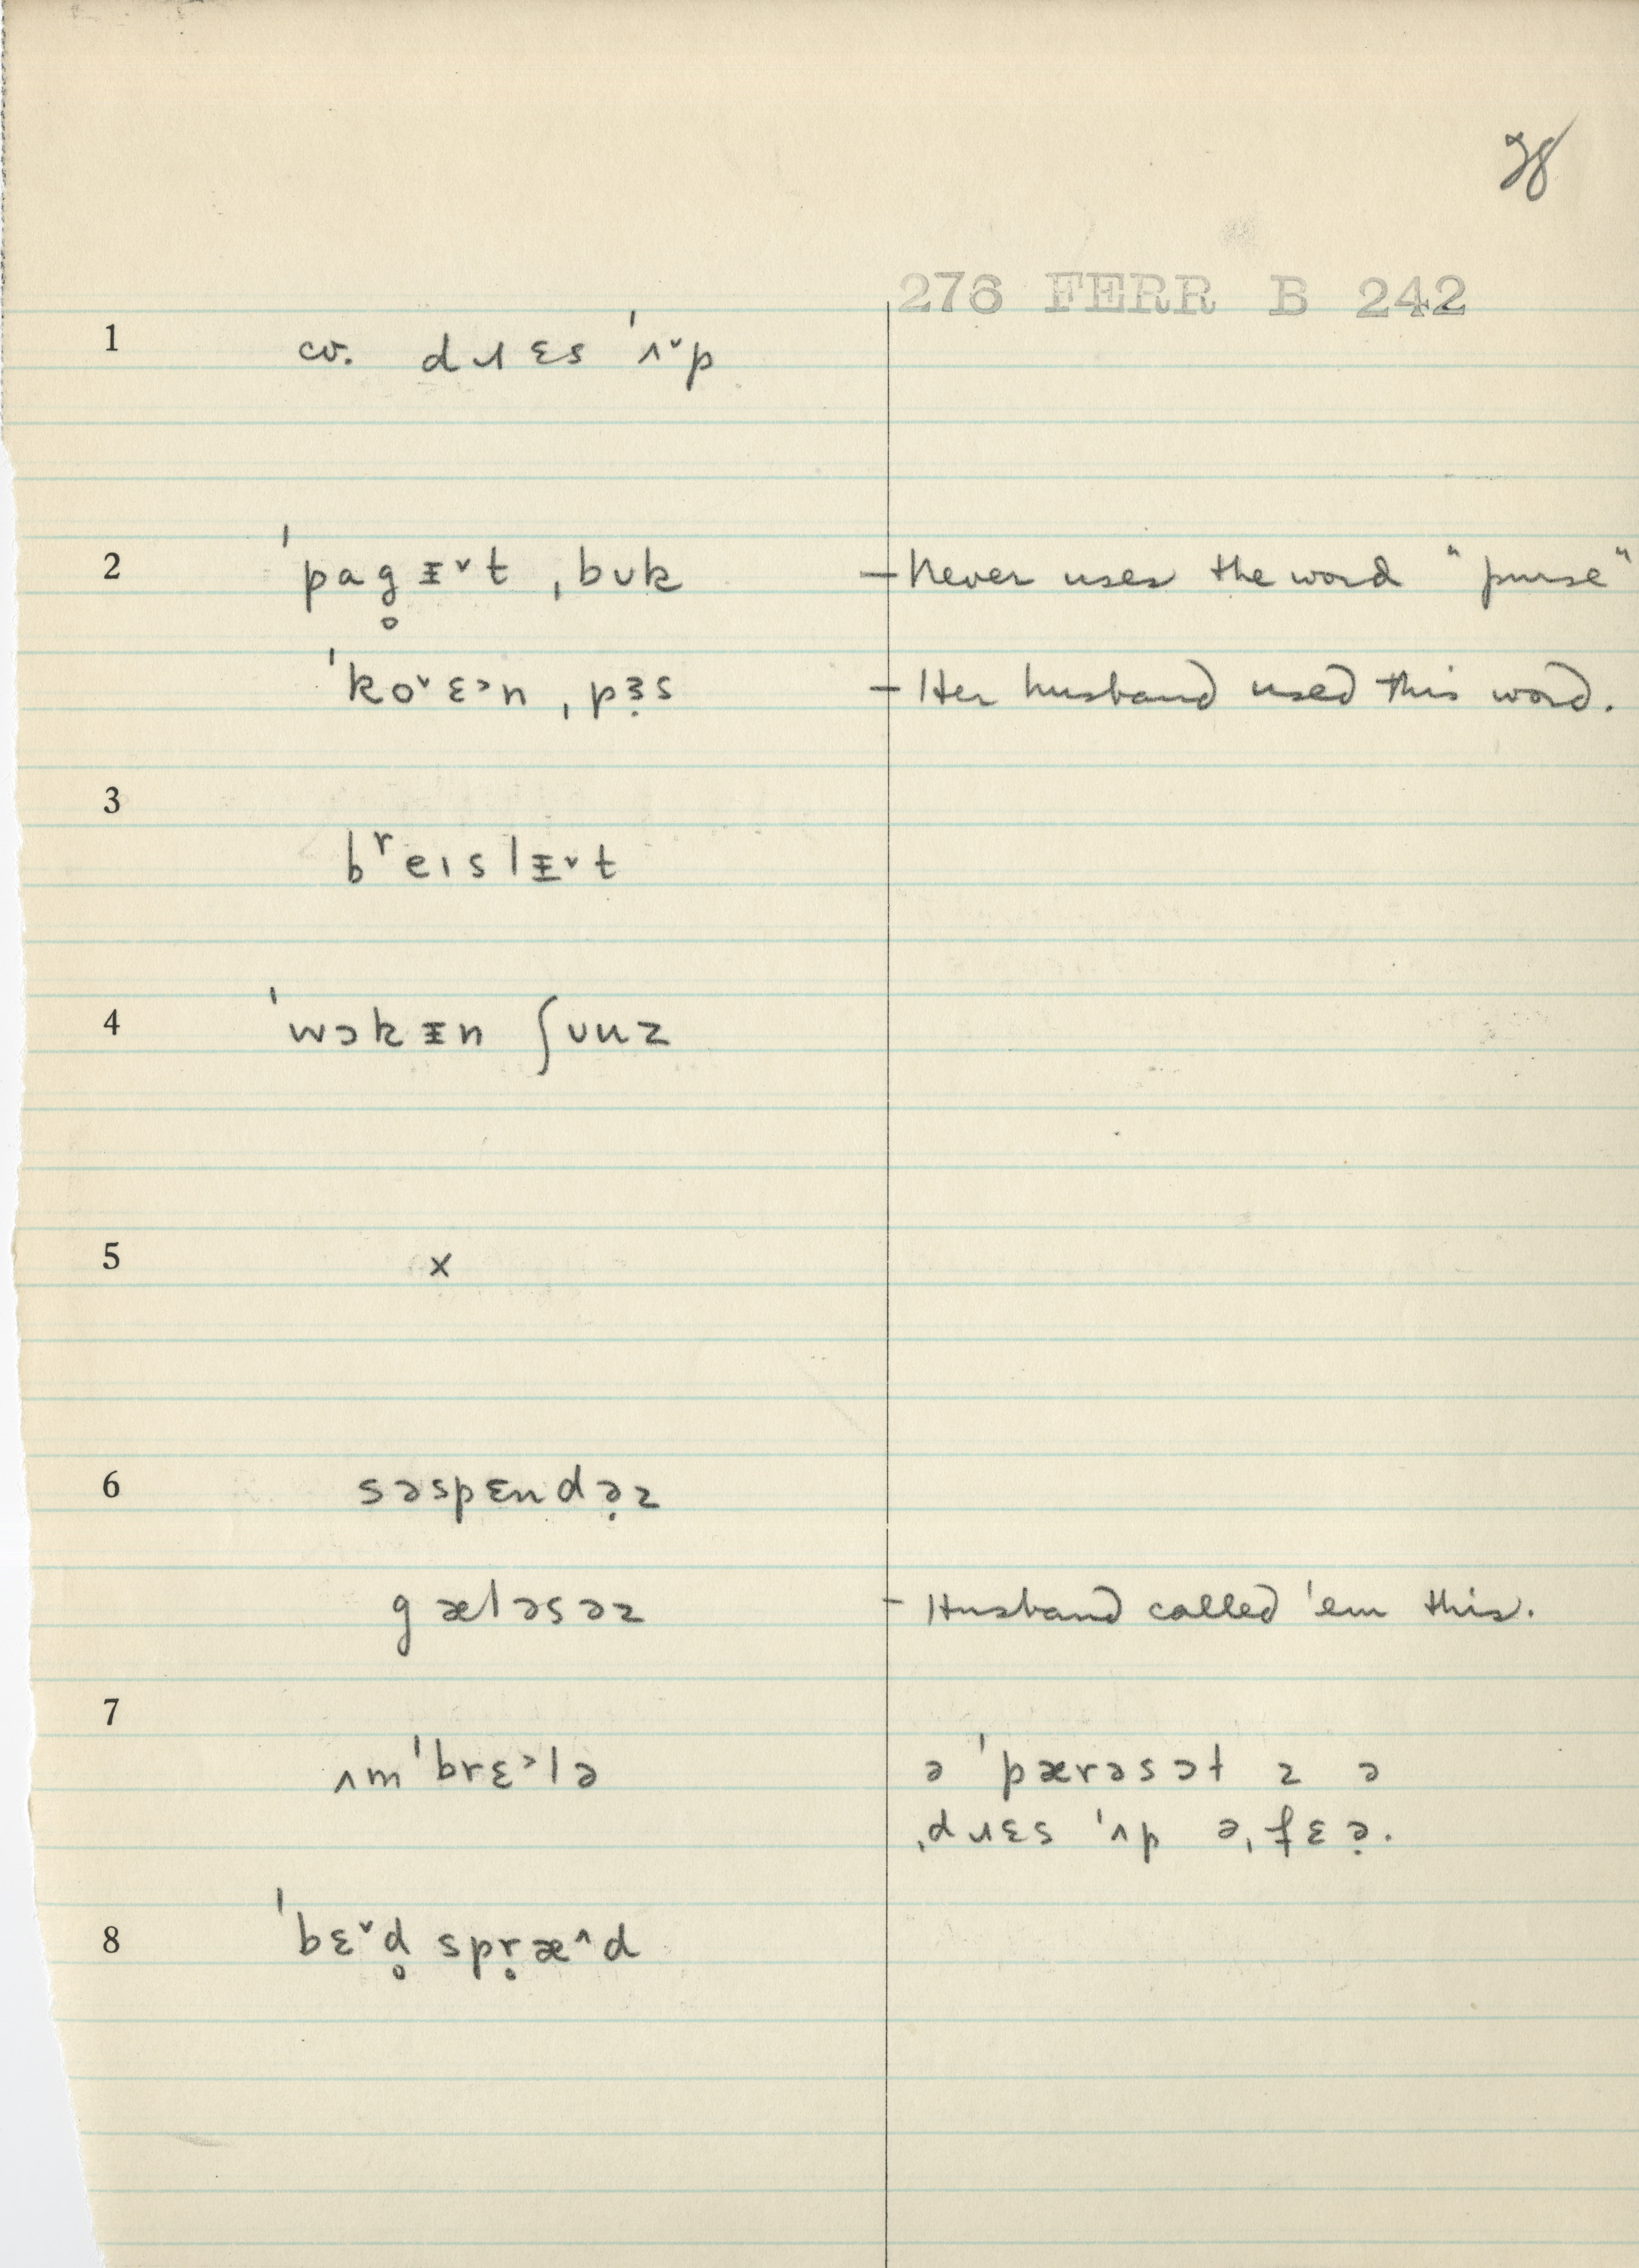 28
276 FERR B 242
1 cv. dɹɛs ˈʌ˅p
2 ˈpag̥ᵻ˅t ˌbᴜk — Never uses the word "purse"
ˈko˅ɛ˃n ˌpɜ̣s — Her husband used this word.
3
bʳeɪslᵻ˅t
4 ˈwɔkᵻn ʃuuz
5 x
6 səspɛndə̣z
gæləsəz - Husband called 'em this.
7
ʌmˈbrɛ˃lə ə ˈpærəsɔt z ə
ˌdɹɛs ˈʌp əˌfɛə̣.
8 ˈbɛ˅d̥ spr̥æ^d